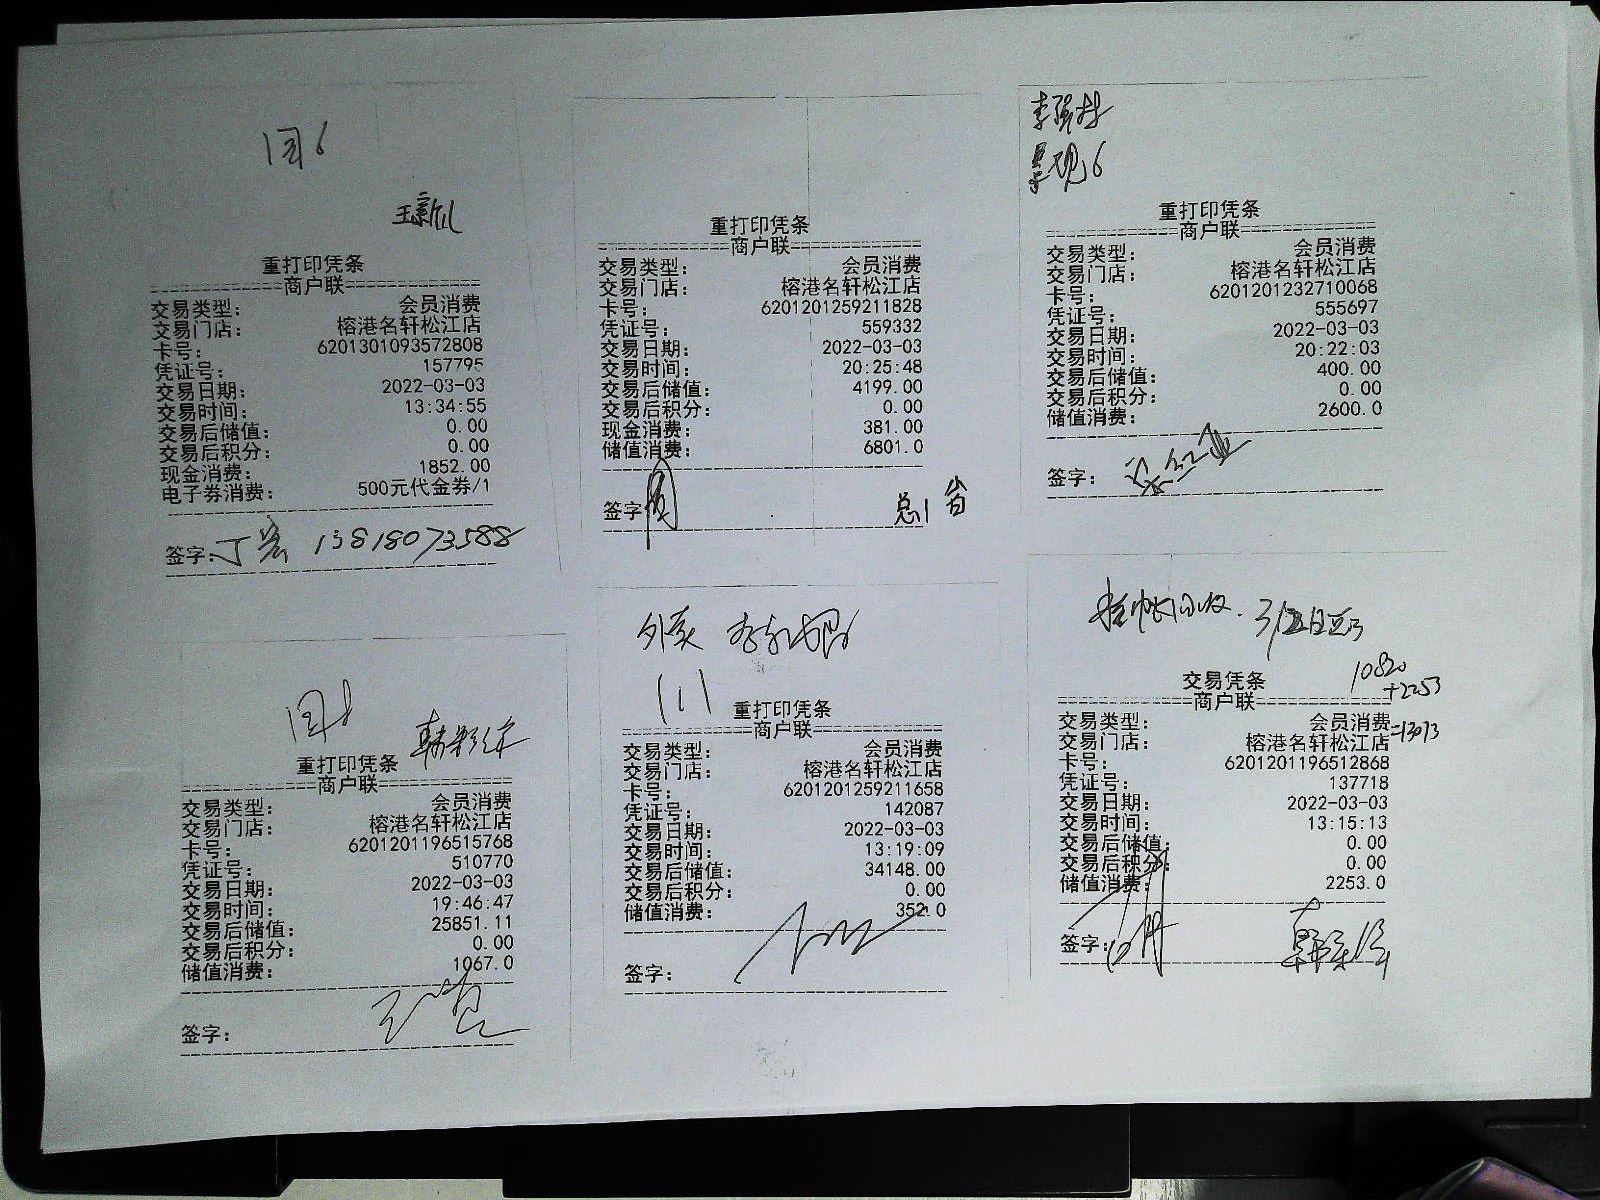 重打印凭条
商户联
交易类型: 会员消费
交易门店: 榕港名轩松江店
卡号: 6201301093572808
凭证号: 157795
交易日期: 2022-03-03
交易时间: 13:34:55
交易后储值: 0.00
交易后积分: 0.00
现金消费: 1852.00
电子券消费: 500元代金券/1
签字: 13818073588
重打印凭条
商户联
交易类型: 会员消费
交易门店: 榕港名轩松江店
卡号: 6201201259211828
凭证号: 559332
交易日期: 2022-03-03
交易时间: 20:25:48
交易后储值: 4199.00
交易后积分: 0.00
现金消费: 381.00
储值消费: 6801.0
签字
重打印凭条
商户联
交易类型: 会员消费
交易门店: 榕港名轩松江店
卡号: 6201201232710068
凭证号: 555697
交易日期: 2022-03-03
交易时间: 20:22:03
交易后储值: 400.00
交易后积分: 0.00
储值消费: 2600.0
签字:
重打印凭条
商户联
交易类型: 会员消费
交易门店: 榕港名轩松江店
卡号: 6201201196515768
凭证号: 510770
交易日期: 2022-03-03
交易时间: 19:46:47
交易后储值: 25851.11
交易后积分: 0.00
储值消费: 1067.0
签字:
外卖
重打印凭条
商户联
交易类型: 会员消费
交易门店: 榕港名轩松江店
卡号: 6201201259211658
凭证号: 142087
交易日期: 2022-03-03
交易时间: 13:19:09
交易后储值: 34148.00
交易后积分: 0.00
储值消费: 352.0
签字:
10820
+2253
=13073
交易凭条
商户联
交易类型: 会员消费
交易门店: 榕港名轩松江店
卡号: 6201201196512868
凭证号: 137718
交易日期: 2022-03-03
交易时间: 13:15:13
交易后储值: 0.00
交易后积分: 0.00
储值消费: 2253.0
签字: